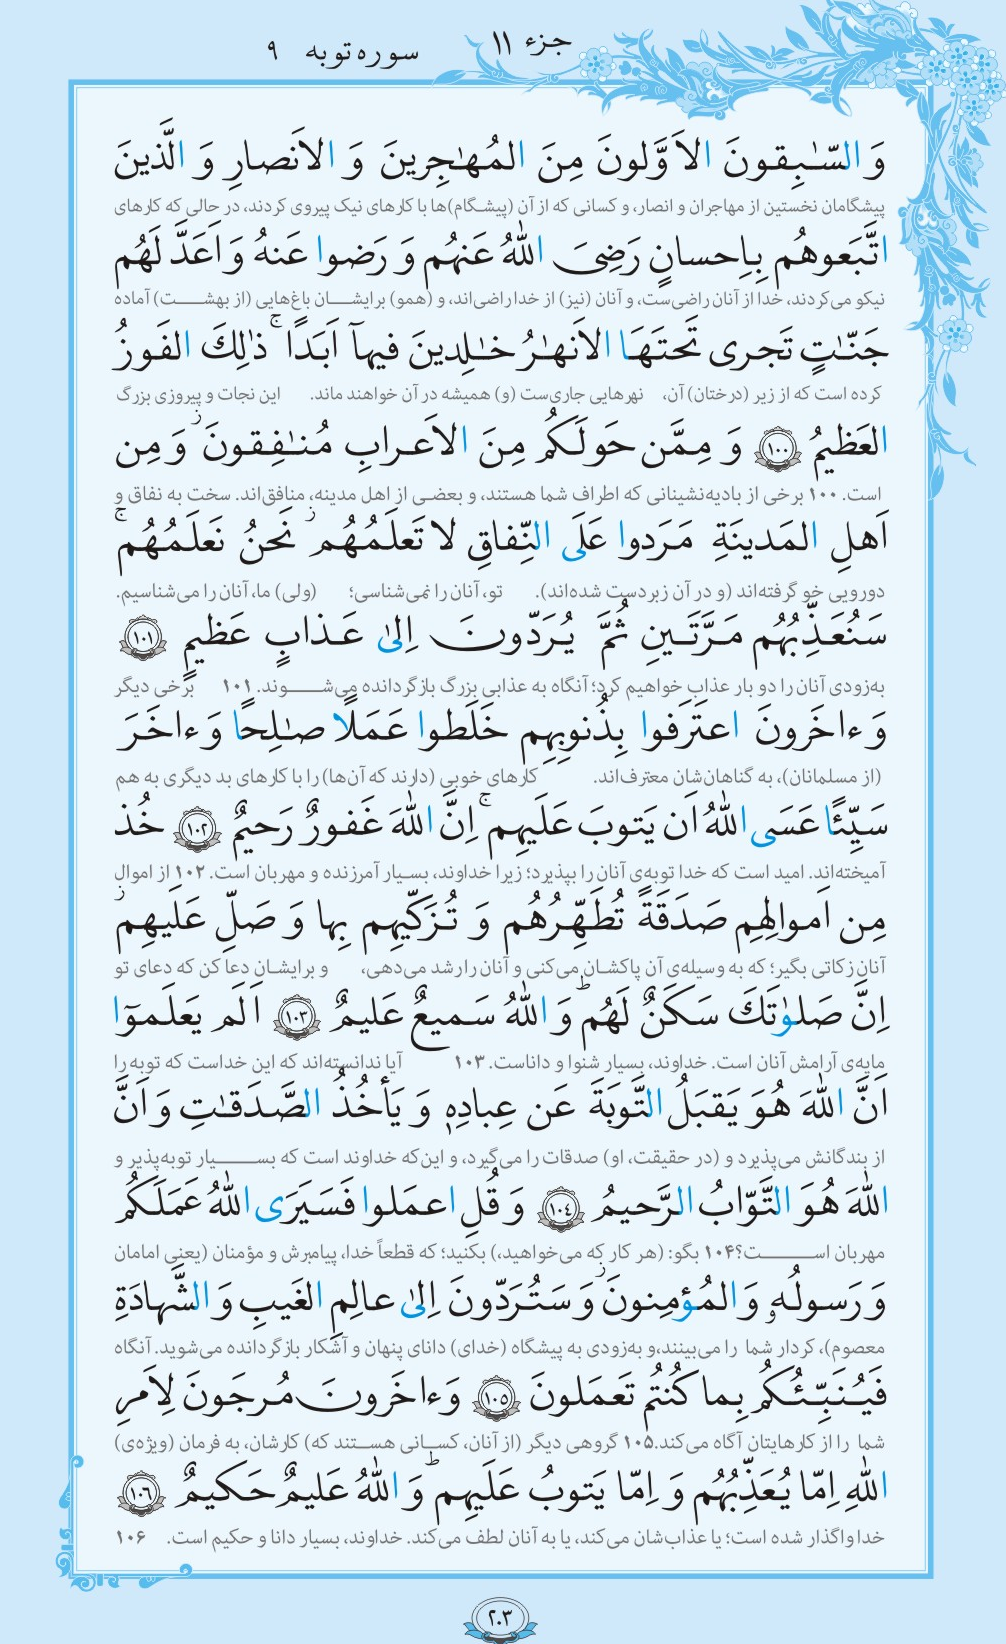 جزء ۱۱
سوره توبه ۹
وَ السّٰبِقونَ الاَوَّلونَ مِنَ المُهٰجِرينَ وَ الاَنصارِ وَ الَّذينَ
پیشگامان نخستین از مهاجران و انصار، و کسانی که از آن (پیشگام)ها با کارهای نیک پیروی کردند، در حالی که کارهای
اتَّبَعوهُم بِاِحسانٍ رَضِىَ اللّٰهُ عَنهُم وَ رَضوا عَنهُ وَ اَعَدَّ لَهُم
نیکو می‌کردند، خدا از آنان راضی‌ست، و آنان (نیز) از خدا راضی‌اند، و (همو) برایشان باغ‌هایی (از بهشت) آماده
جَنّٰتٍ تَجرى تَحتَهَا الاَنهٰرُ خٰلِدينَ فيهآ اَبَدًا ۚ ذٰلِكَ الفَوزُ
کرده است که از زیر (درختان) آن، نهرهایی جاری‌ست (و) همیشه در آن خواهند ماند. این نجات و پیروزی بزرگ
العَظيمُ ۱۰۰ وَ مِمَّن حَولَكُم مِنَ الاَعرابِ مُنٰفِقونَ ز وَ مِن
است. ۱۰۰ برخی از بادیه‌نشینانی که اطراف شما هستند، و بعضی از اهل مدینه، منافق‌اند. سخت به نفاق و
اَهلِ المَدينَةِ مَرَدوا عَلَى النِّفاقِ لا تَعلَمُهُم ز نَحنُ نَعلَمُهُم ۚ
دورویی خو گرفته‌اند (و در آن زبردست شده‌اند). تو، آنان را نمی‌شناسی؛ (ولی) ما، آنان را می‌شناسیم.
سَنُعَذِّبُهُم مَرَّتَينِ ثُمَّ يُرَدّونَ اِلىٰ عَذابٍ عَظيمٍ ۱۰۱
به‌زودی آنان را دو بار عذاب خواهیم کرد؛ آنگاه به عذابی بزرگ بازگردانده می‌شوند. ۱۰۱ برخی دیگر
وَ ءاخَرونَ اعتَرَفوا بِذُنوبِهِم خَلَطوا عَمَلًا صٰلِحًا وَ ءاخَرَ
(از مسلمانان)، به گناهان‌شان معترف‌اند. کارهای خوبی (دارند که آن‌ها) را با کارهای بد دیگری به هم
سَيِّئًا عَسَى اللّٰهُ اَن يَتوبَ عَلَيهِم ۚ اِنَّ اللّٰهَ غَفورٌ رَحيمٌ ۱۰۲ خُذ
آمیخته‌اند. امید است که خدا توبه‌ی آنان را بپذیرد؛ زیرا خداوند، بسیار آمرزنده و مهربان است. ۱۰۲ از اموال
مِن اَموالِهِم صَدَقَةً تُطَهِّرُهُم وَ تُزَكّيهِم بِها وَ صَلِّ عَلَيهِم ز
آنان زکاتی بگیر؛ که به وسیله‌ی آن پاکشان می‌کنی و آنان را رشد می‌دهی، و برایشان دعا کن که دعای تو
اِنَّ صَلوٰتَكَ سَكَنٌ لَهُم ط وَ اللّٰهُ سَميعٌ عَليمٌ ۱۰۳ اَلَم يَعلَموٓا
مایه‌ی آرامش آنان است. خداوند، بسیار شنوا و داناست. ۱۰۳ آیا ندانسته‌اند که این خداست که توبه را
اَنَّ اللّٰهَ هُوَ يَقبَلُ التَّوبَةَ عَن عِبادِهٖ وَ يَأخُذُ الصَّدَقٰتِ وَ اَنَّ
از بندگانش می‌پذیرد و (در حقیقت، او) صدقات را می‌گیرد، و این‌که خداوند است که بسیار توبه‌پذیر و
اللّٰهَ هُوَ التَّوّابُ الرَّحيمُ ۱۰۴ وَ قُلِ اعمَلوا فَسَيَرَى اللّٰهُ عَمَلَكُم
مهربان است؟ ۱۰۴ بگو: (هر کار که می‌خواهید،) بکنید؛ که قطعاً خدا، پیامبرش و مؤمنان (یعنی امامان
وَ رَسولُهٗ وَ المُؤمِنونَ ز وَ سَتُرَدّونَ اِلىٰ عالِمِ الغَيبِ وَ الشَّهادَةِ
معصوم)، کردار شما را می‌بینند، و به‌زودی به پیشگاه (خدای) دانای پنهان و آشکار بازگردانده می‌شوید. آنگاه
فَيُنَبِّئُكُم بِما كُنتُم تَعمَلونَ ۱۰۵ وَ ءاخَرونَ مُرجَونَ لِاَمرِ
شما را از کارهایتان آگاه می‌کند. ۱۰۵ گروهی دیگر (از آنان، کسانی هستند که) کارشان، به فرمان (ویژه‌ی)
اللّٰهِ اِمّا يُعَذِّبُهُم وَ اِمّا يَتوبُ عَلَيهِم ط وَ اللّٰهُ عَليمٌ حَكيمٌ ۱۰۶
خدا واگذار شده است؛ یا عذاب‌شان می‌کند، یا به آنان لطف می‌کند. خداوند، بسیار دانا و حکیم است. ۱۰۶
۲۰۳